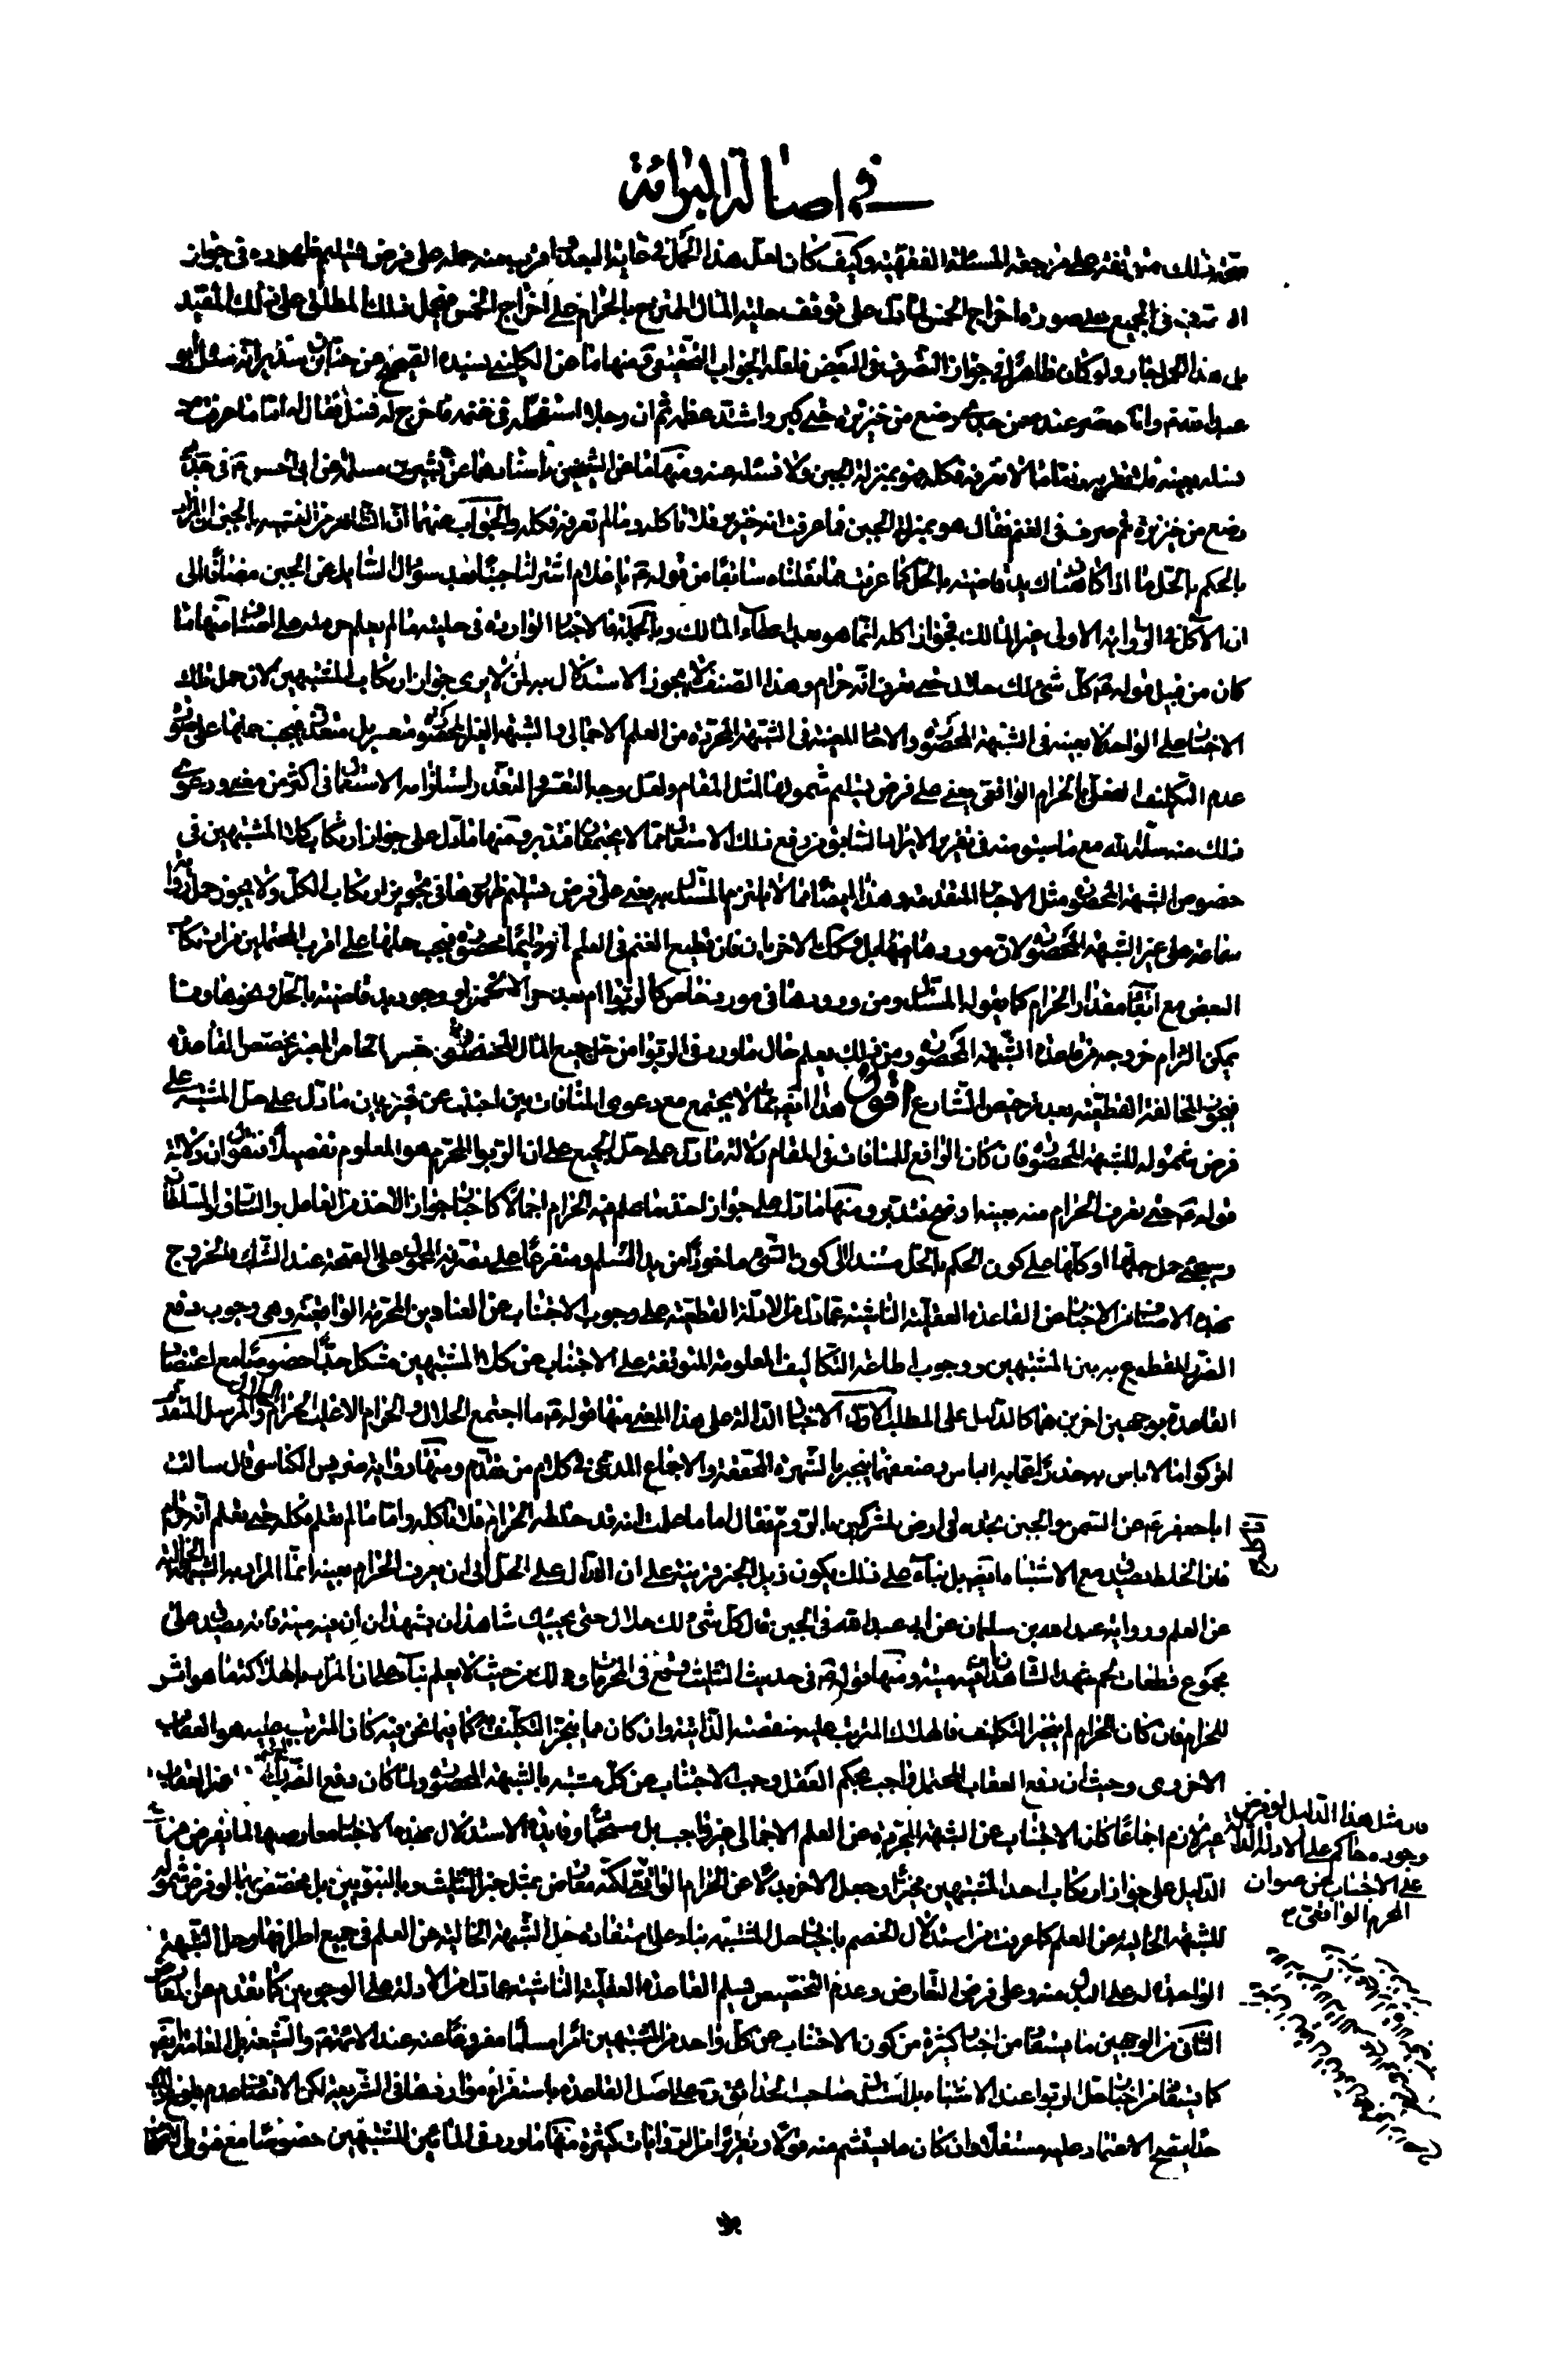 في اصالة البرائة
ذلك منه من جهة المسئلة الفقهية وكيف كان لعل هذا الحمل في غاية البعد اقرب منه حمله على فرض تسليم ظهوره في جواز
التصرف في الجميع بعد صورة اخراج الخمس لما دل على توقف حلية المال الممتزج بالحرام على اخراج الخمس فيحمل ذلك المطلق على ذلك المقيد
بل هذا الحمل جار ولو كان ظاهرا في جواز التصرف في البعض فلعله الجواب الحقيقي ومنها ما عن الكليني بسنده الصحيح عن حنان بن سدير انه سئل ابو
عبد الله ع وانا حضر عنده عن جدي رضع من خنزيرة حتى كبر واشتد عظمه ثم ان رجلا استفحله في غنمه فاخرج له نسل فقال اما ما عرفت من
نسله بعينه فلا تقربه واما ما لا تعرفه فكله وهو بمنزلة الجبن ولا تسئل عنه ومنها ما عن الشيخين باسنادهما عن بشير بن مسلمة عن ابي الحسن ع في جدي
رضع من خنزيرة ثم صرف في الغنم فقال هو بمنزلة الجبن فما عرفت انه خنزير فلا تاكله وما لم تعرفه فكله والجواب عنهما ان الظاهر من التشبيه بالجبن ان المراد
بالحكم بالحل ما اذا كان هناك يد قاضية بالحل كما عرفت مما نقلناه سابقا من قوله ع يا غلام اشتر لنا جبنا بعد سؤال السائل عن الجبن مضافا الى
ان الآكل في الرواية الاولى غير المالك فجواز اكله انما هو بعد اعطاء المالك وبالجملة فالاخبار الواردة في حلية ما لم يعلم حرمته على اصناف منها ما
كان من قبيل قوله ع كل شئ لك حلال حتى تعرف انه حرام وهذا الصنف لا يجوز الاستدلال به لمن لا يرى جواز ارتكاب المشتبهين لان حمل تلك
الاخبار على الواحد لا بعينه في الشبهة المحصورة والآحاد المعينة في الشبهة المجردة من العلم الاجمالي والشبهة الغير المحصورة متعسر بل متعذر فيجب حملها على صورة
عدم التكليف الفعلي بالحرام الواقعي يعني على فرض تسليم شمولها لمثل المقام ولعل وجه التعسر والتعذر استلزامه الاستعمال في اكثر من معنى ودعوى
ذلك منه سلمه الله مع ما سبق منه في تقرير الايراد السابق من رفع ذلك الاستعمال مما لا يجتمعان فتدبر ومنها ما دل على جواز ارتكاب كلا المشتبهين في
خصوص الشبهة المحصورة مثل الاخبار المتقدمة وهذا ايضا مما لا يلتزم المستدل به يعني على فرض تسليم ظهورها في تجويز ارتكاب الكل ولا يجوز حمل رواية
سماعة على غير الشبهة المحصورة لان موردها فيها بل وكك الاخريان فان قطيع الغنم في العلم انه دائما محصور فيجب حملها على اقرب المحتملين من ارتكاب
البعض مع ابقاء مقدار الحرام كما يقوله المستدل ومن ورودها في مورد خاص كالربوا ام بعد حوالة الخمس او وجود يد قاضية بالحل ونحوها ومما
يمكن التزام خروجه من قاعدة الشبهة المحصورة ومن ذلك يعلم حال ما ورد في الربوا من حل جميع المال المختلط به
فيجوز المخالفة القطعية بعد ترخيص الشارع اقول هذا ايضا مما لا يجتمع مع دعوى المنافات بين اجتنب عن خمر وبين ما دل على حل المشتبه على
فرض شموله للشبهة المحصورة فان كان الواقع للمنافات في المقام دلالة ما دل على حل الجميع على ان الربوا المحرم هو المعلوم تفصيلا فنقول ان دلالة
قوله ع حتى تعرف الحرام منه بعينه اوضح فتدبر ومنها ما دل على جواز اخذ ما علم فيه الحرام اجمالا كاخبار جواز الاخذ من العامل والسارق والسلطان
وسيجئ حمل جلها او كلها على كون الحكم بالحل مستندا الى كون الشئ ماخوذا من يد المسلم ومتفرعا على تصرفه المحمول على الصحة عند الشك والخروج
بهذه الاصناف من الاخبار عن القاعدة العقلية الناشئة مما دل من الادلة القطعية على وجوب الاجتناب عن العناوين المحرمة الواقعية وهي وجوب دفع
الضرر المقطوع به بين المشتبهين ووجوب اطاعة التكاليف المعلومة المتوقفة على الاجتناب عن كلا المشتبهين مشكل جدا خصوصا مع اعتضاد
القاعدة بوجهين اخرين هما كالدليل على المطلب الاول الاخبار الدالة على هذا المعنى منها قوله ع ما اجتمع الحلال والحرام الا غلب الحرام الحلال والمرسل المتقدم
اتركوا ما لا باس به حذرا عما به الباس وضعفهما ينجبر بالشهرة المحققة والاجماع المدعى في كلام من تقدم ومنها رواية ضريس الكناسي قال سالت
ابا جعفر ع عن السمن والجبن نجده في ارض المشركين بالروم فقال اما ما علمت انه قد خلطه الحرام فلا تاكله واما ما لم تعلم فكله حتى تعلم انه حرام
فان الخلط يصدق مع الاشتباه بل بناء على ذلك يكون ذيل الخبر قرينة على ان الدال على الحل الى ان يعرف الحرام بعينه انما المراد به الشبهة الخالية
عن العلم ورواية عبد الله بن سليمان عن ابي عبد الله في الجبن قال كل شئ لك حلال حتى يجيئك شاهدان يشهدان ان فيه ميتة فانه يصدق على
مجموع قطعات لحم شهد الشاهدان ان فيه ميتة ومنها قوله ع في حديث التثليث وقع في المحرمات وهلك من حيث لا يعلم بناء على ان المراد بالهلاكة ما هو اثر
للحرام فان كان الحرام لم يتنجز التكليف فالهلاك المترتب عليه منقصته الذاتية وان كان مما يتنجز التكليف به كما فيما نحن فيه كان المترتب عليه هو العقاب
الاخروى وحيث ان دفع العقاب المحتمل واجب بحكم العقل وجب الاجتناب عن كل مشتبه بالشبهة المحصورة ولما كان دفع الضرر غير العقاب
غير لازم اجماعا كان الاجتناب عن الشبهة المجردة عن العلم الاجمالي غير واجب بل مستحبا وفائدة الاستدلال بهذه الاخبار معارضتها لما يفرض من
الدليل على جواز ارتكاب احد المشتبهين مخيرا وجعل الاخر بدلا عن الحرام الواقعي لكنه معارض بمثل خبر التثليث وبالنبويين بل مخصص بهما لو فرض شموله
للشبهة الخالية عن العلم كما عرفت من استدلال الخصم باخبار حل المشتبه بناء على استفادة حل الشبهة الخالية عن العلم في جميع اطرافها وحل الشبهة
الواحدة له على البدل منه وعلى فرض التعارض وعدم التخصيص فيسلم القاعدة العقلية الناشئة مما دل من الادلة على الوجوبين كما تقدم عن المعارض
الثاني من الوجهين ما يستفاد من اخبار كثيرة من كون الاجتناب عن كل واحد من المشتبهين امرا مسلما مفروغا عنه عند الائمة ع والشيعة بل العامة ايضا
كما يستفاد من اخبار حل الربوا عند الاشتباه بل استدل صاحب الحدائق ره على اصل القاعدة باستقراء مواردها في الشريعة لكن الانصاف عدم بلوغ ذلك
حدا يصح الاعتماد عليه مستقلا وان كان ما يستشم منه قولا وتقريرا من الروايات كثيرة منها ما ورد في المائين المشتبهين خصوصا مع فتوى الاصحاب
فان مثل هذا الدليل لو فرض
وجوده حاكم على الادلة الدالة
على الاجتناب عن عنوان
المحرم الواقعي م